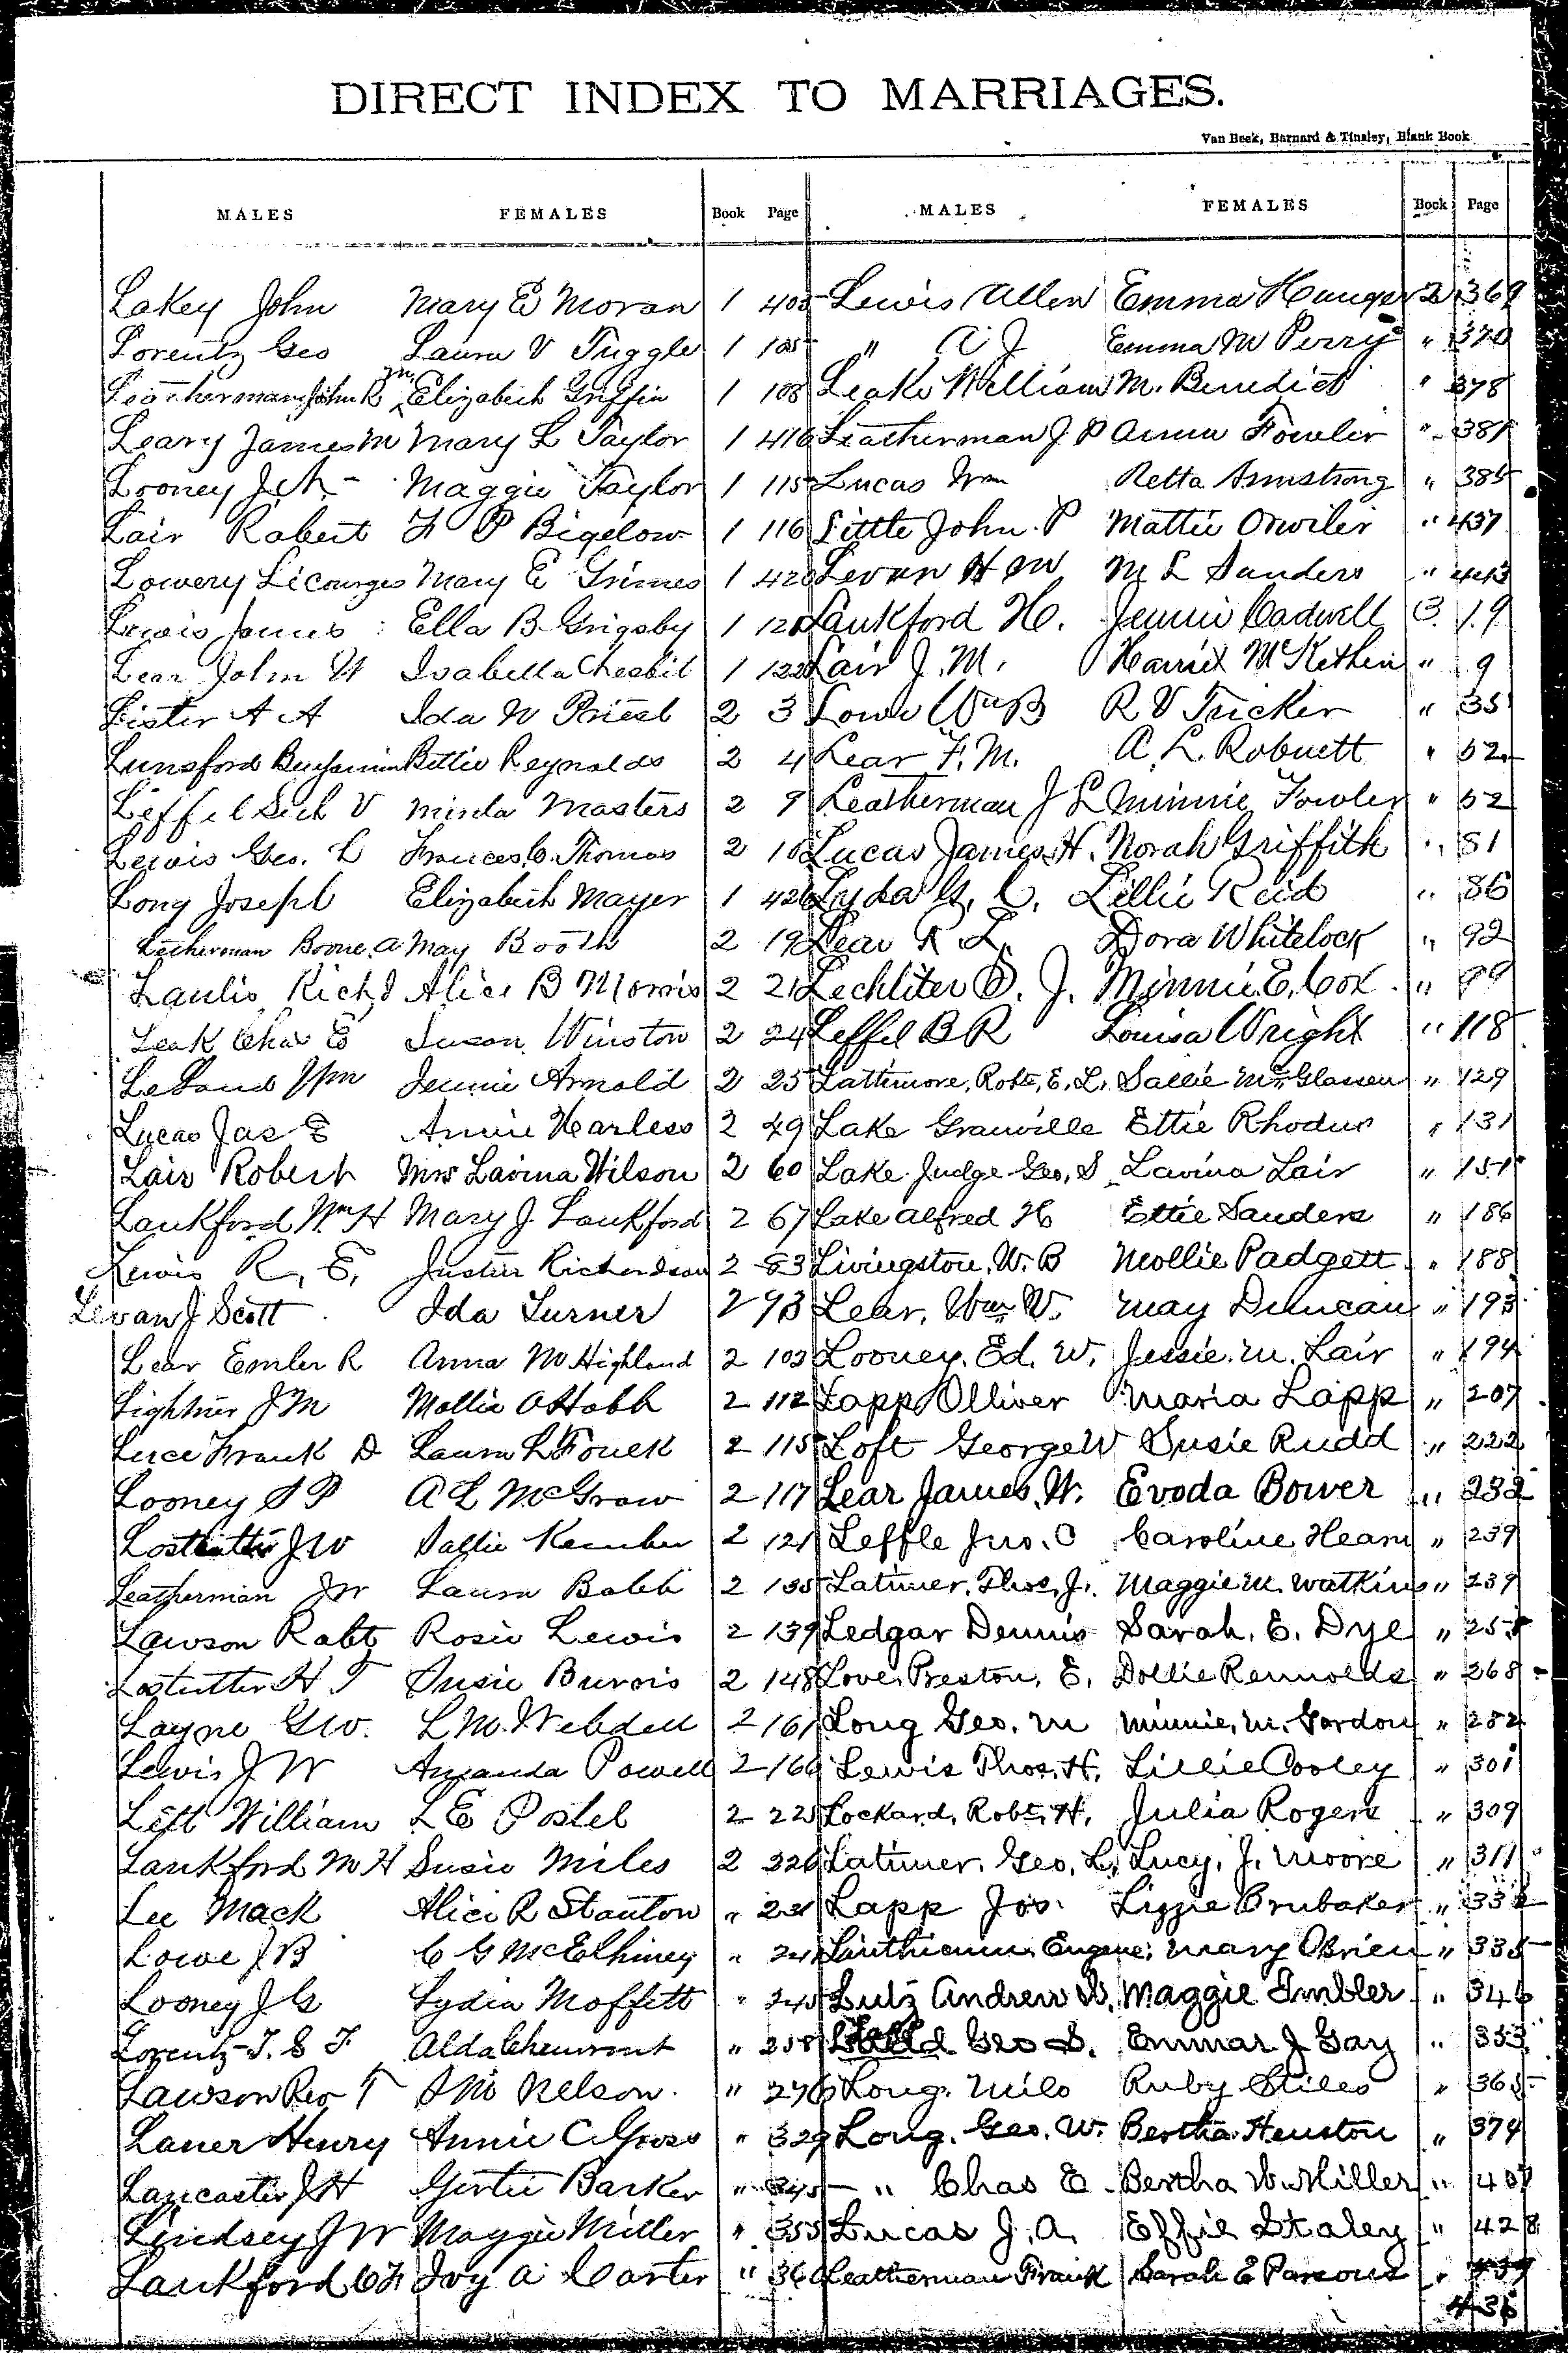 DIRECT INDEX TO MARRIAGES.
Van Beek, Barnard & Tinsley, Blank Book
MALES FEMALES Book Page MALES FEMALES Book Page
Lakey John Mary E Moran 1 405 Lewis Allen Emma Hauger 2 369
Lorentz Geo Laura V Tuggle 1 105 " A J Emma M Perry " 370
Leatherman John R Elizabeth Griffin 1 108 Leake William M. Benedict " 378
Leary James M Mary L Taylor 1 416 Leatherman J. P Anna Fowler " 381
Looney J. A. Maggie Taylor 1 115 Lucas Wm Retta Armstrong " 385
Lair Robert F P Bigelow 1 116 Little John. P Mattie Orwiler " 437
Lowery Licourges Mary E Grimes 1 420 Levan H M M L Sanders " 443
Lewis James Ella B Grigsby 1 120 Lankford H. Jennie Cadwell 3 19
Lear John W Isabella Chesbit 1 122 Lair J. M. Harriet McKethen " 9
Lister A A Ida W Priest 2 3 Lowe Wm B R V Tricker " 35
Lunsford Benjamin Bettie Reynolds 2 4 Lear F. M. A. L. Robnett " 52
Leffel V Minda Masters 2 9 Leatherman J L Minnie Fowler " 52
Lewis Geo. L Frances C. Thomas 2 10 Lucas James H. Norah Griffith " 81
Long Joseph Elizabeth Mayer 1 426 Lyda G. C. Lillie Reid " 86
Letherman Boone. A May Booth 2 19 Lear R. L. Dora Whitelock " 92
Laulis Rich'd Alice B Morris 2 21 Lechliter D. J. Minnie E. Cox " 99
Leak Chas E Susan Winston 2 24 Leffel B R Louisa Wright " 118
Wm Jennie Arnold 2 25 Lattimore, Robt, E. L. Sallie " 129
Lucas Jas E Annie Harless 2 49 Lake Granville Ettie Rhodus " 131
Lair Robert Mrs Lavina Wilson 2 60 Lake Judge Geo. S Lavina Lair " 151
Lankford Wm H Mary J. Lankford 2 67 Lake Alfred H Ettie Sanders " 186
Lewis R. E. Richardson 2 83 Livingston, W. B Mollie Padgett " 188
Levan J Scott Ida Turner 2 93 Lear, Wm W. May Duncan " 193
Lear Emler R Anna M Highland 2 103 Looney, Ed. W. Jessie. M. Lair " 194
Lightner J M Mollie A Hobb 2 112 Lapp Olliver Maria Lapp " 207
Luce Frank D Laura L Fouck 2 115 Loft George W Susie Rudd " 222
Looney S P A L McGraw 2 117 Lear James. W. Evoda Bower " 232
Lostutter J W Sallie Kember 2 121 Leffle Jno. C Caroline Hearn " 239
Leatherman J W Laura Babb 2 135 Latimer, Thos. J. Maggie M. Watkins " 239
Lawson Robt Rosie Lewis 2 139 Ledgar Dennis Sarah. E. Dye " 255
Lostutter H T Susie Burris 2 148 Love Preston, E. Dollie Rennolds " 268
Layne G W. L M. Webdell 2 161 Long Geo. M Minnie. M. Gordon " 282
Lewis J W Amanda Powell 2 166 Lewis Thos. H. Lillie Cooley " 301
Litt William L E Postel 2 225 Lockard, Robt. H. Julia Rogers " 309
Lankford M H Susie Miles 2 226 Latimer, Geo. L. Lucy, J. Moore " 311
Lee Mack Alice R Stanton " 231 Lapp Jos. Lizzie Brubaker " 332
Lowe J B C G McElhiney " 241 Linthicum, Eugene, Mary OBrien " 335
Looney J G Lydia Moffett " 245 Lutz Andrew D. Maggie Embler " 346
Lorentz T. S F Alda Chenvront " 258 Geo S. Emmar J Gay " 353
Lawson Rev T S M Nelson " 276 Long. Milo Ruby Stiles " 365
Laner Henry Annie C Gross " 329 Long. Geo. W. Bertha Heuston " 374
Lancaster J H Gertie Barker " 345 " Chas E Bertha W. Miller " 407
Lindsey J W Maggie Miller " 355 Lucas J. A. Effie Staley " 428
Lankford C F Ivy A Carter " 360 Leatherman Frank Sarah E Parsons " 439
436